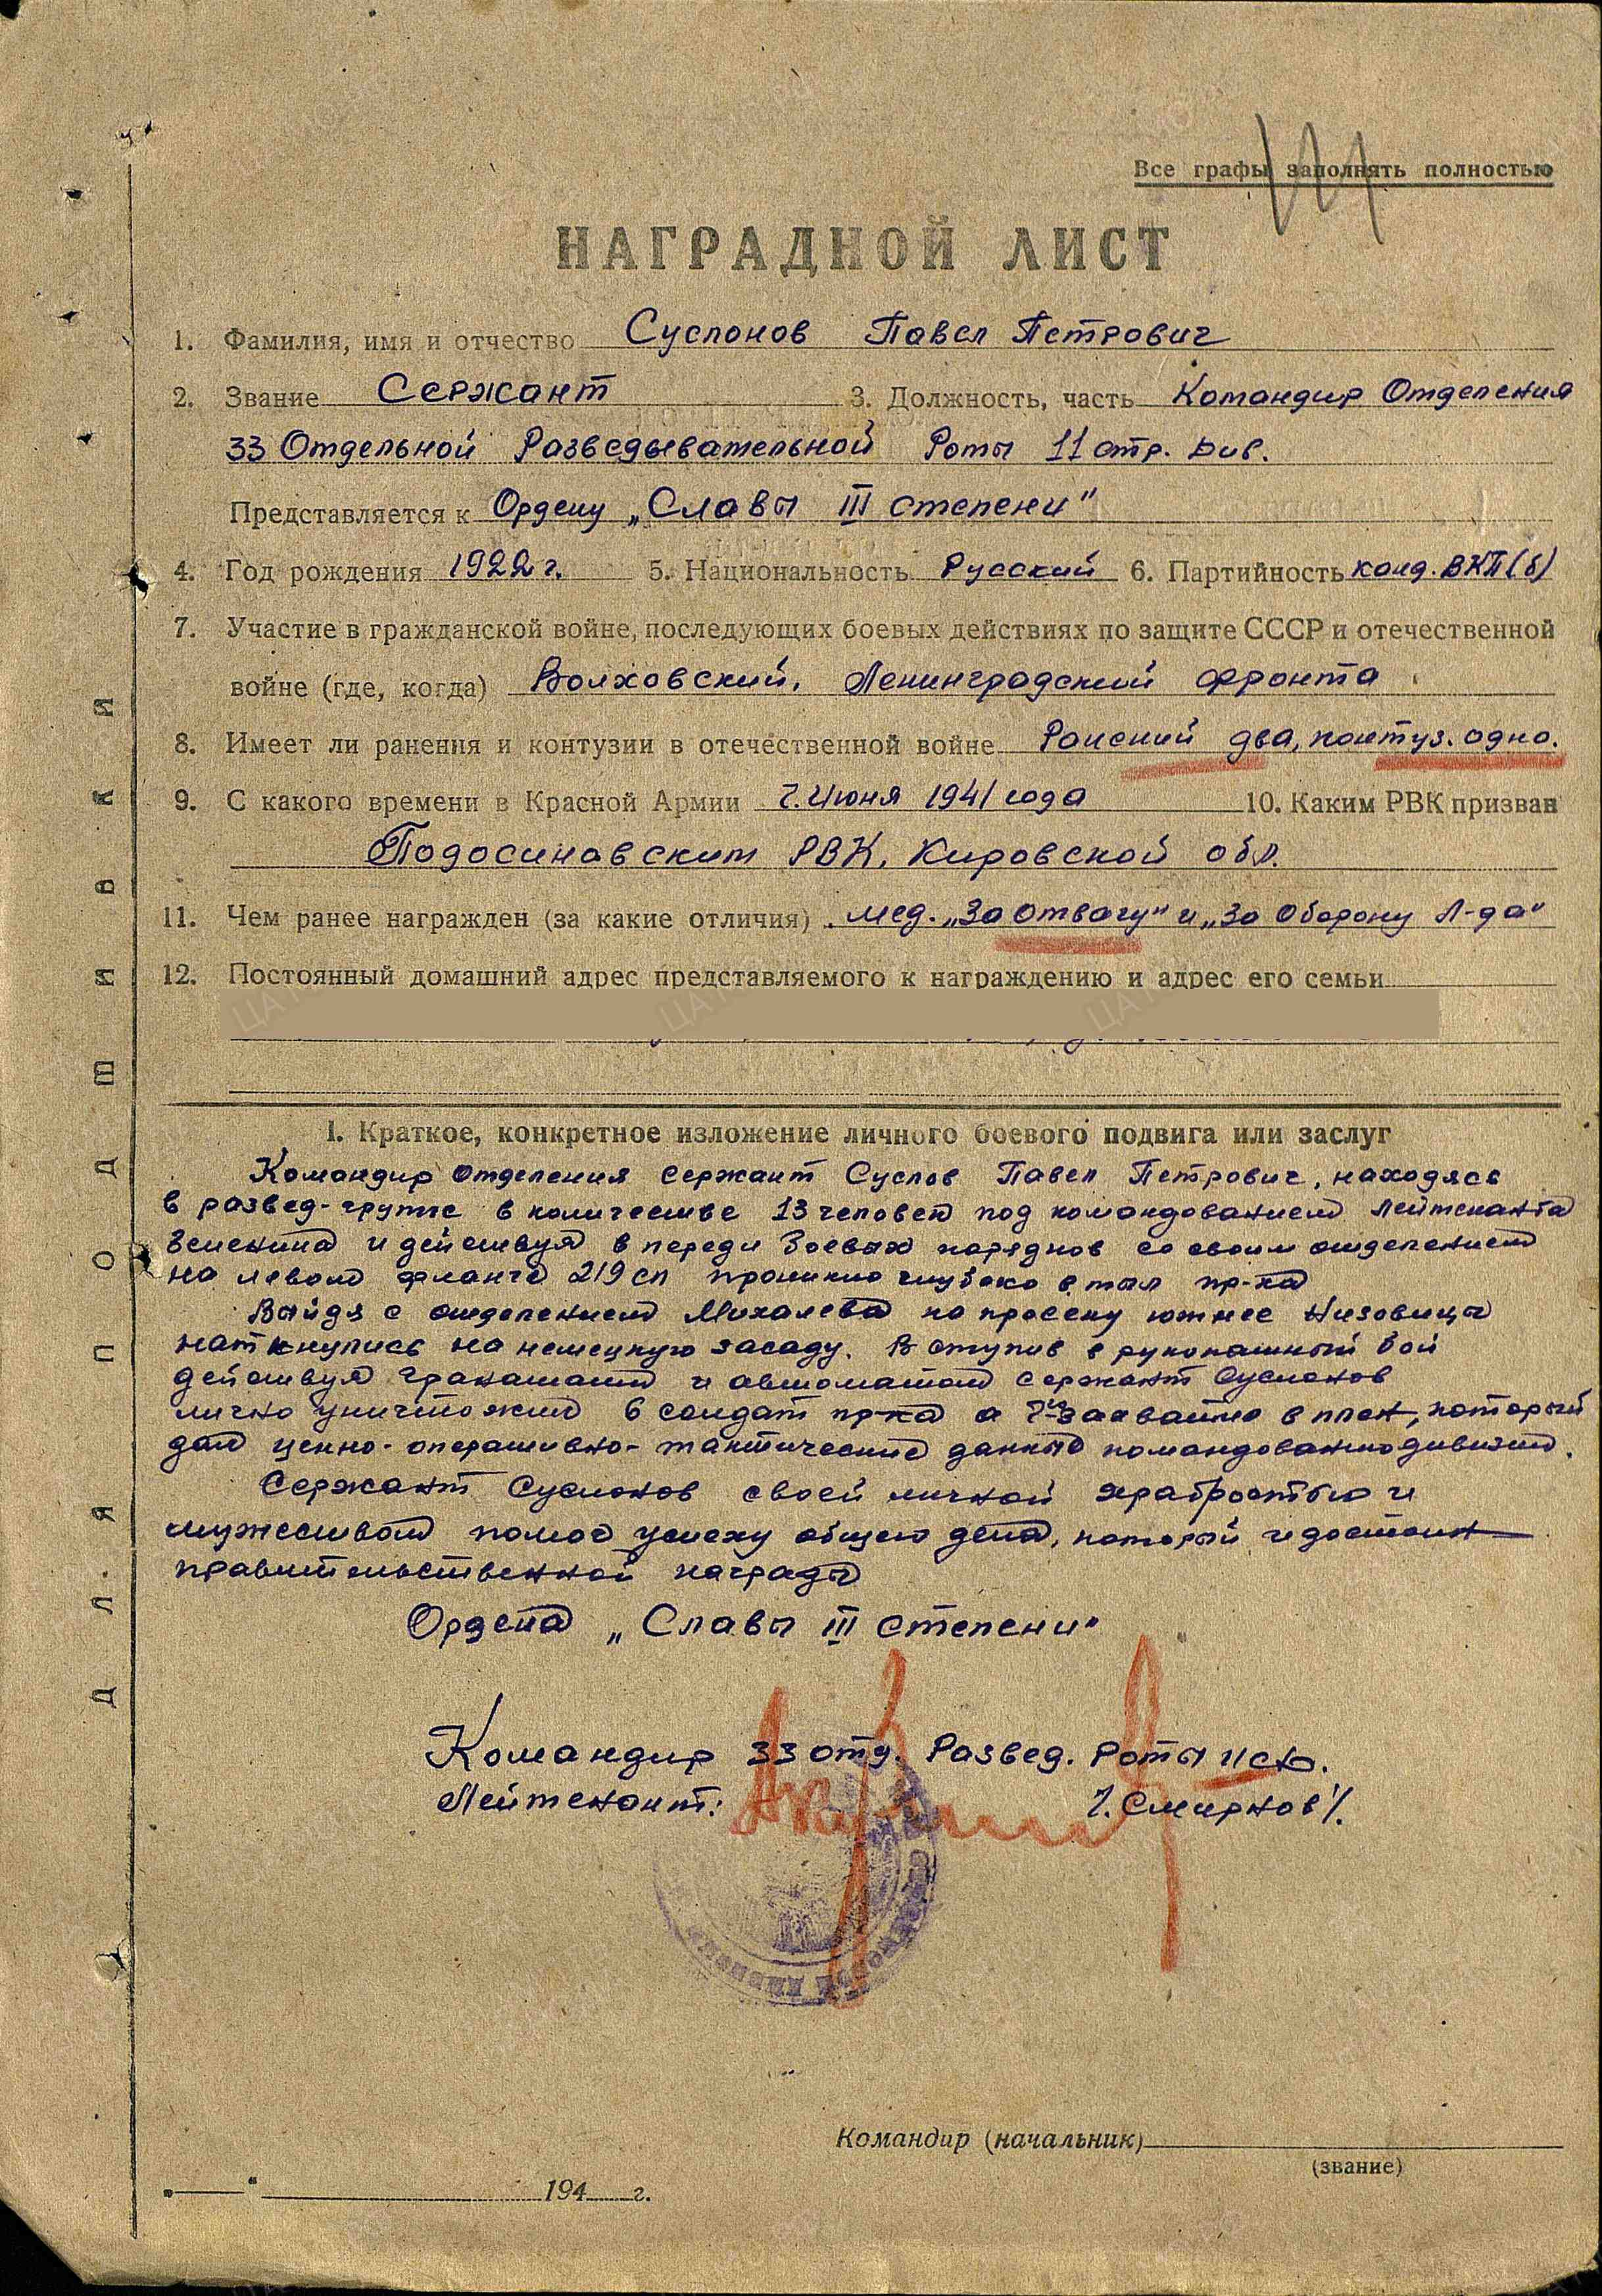 Все графы заполнять полностью
НАГРАДНОЙ ЛИСТ
1. Фамилия, имя и отчество Суслонов Павел Петрович
2. Звание Сержант 3. Должность, часть Командир Отделения
33 Отдельной Разведывательной Роты 11 стр. Див.
Представляется к Ордену „Славы III степени"
4. Год рождения 1922 г. 5. Национальность Русский 6. Партийность канд. ВКП(б)
7. Участие в гражданской войне, последующих боевых действиях по защите СССР и отечественной
войне (где, когда) Волховский, Ленинградский фронта
8. Имеет ли ранения и контузии в отечественной войне Ранений два, контуз. одно.
9. С какого времени в Красной Армии Июня 1941 года 10. Каким РВК призван
Подосинавским РВК, Кировской обл.
11. Чем ранее награжден (за какие отличия) мед. „За отвагу" и „За Оборону Л-да"
12. Постоянный домашний адрес представляемого к награждению и адрес его семьи
I. Краткое, конкретное изложение личного боевого подвига или заслуг
Командир Отделения сержант Суслов Павел Петрович, находясь
в развед-группе в количестве 13 человек под командованием лейтенанта
и действуя в переди боевых порядков со своим отделением
на левом фланге 219 сп проникло глубоко в тыл пр-ка
Выйдя с отделением Михалева на просеку южнее Низовицы
наткнулись на немецкую засаду. Вступив в рукопашный бой
действуя гранатами и автоматом сержант Суслонов
лично уничтожил 6 солдат пр-ка а захватил в плен, который
дал ценно-оперативно-тактические данные командованию дивизии.
Сержант Суслонов своей личной храбростью и
мужеством помог успеху общего дела, который и достоин
правительственной награды
Ордена „Славы III степени"
Командир 33 отд. Развед. Роты 11 сд.
Лейтенант: /. Смирнов /.
Командир (начальник)
(звание)
„ " 194 г.
ДЛЯ ПОДШИВКИ